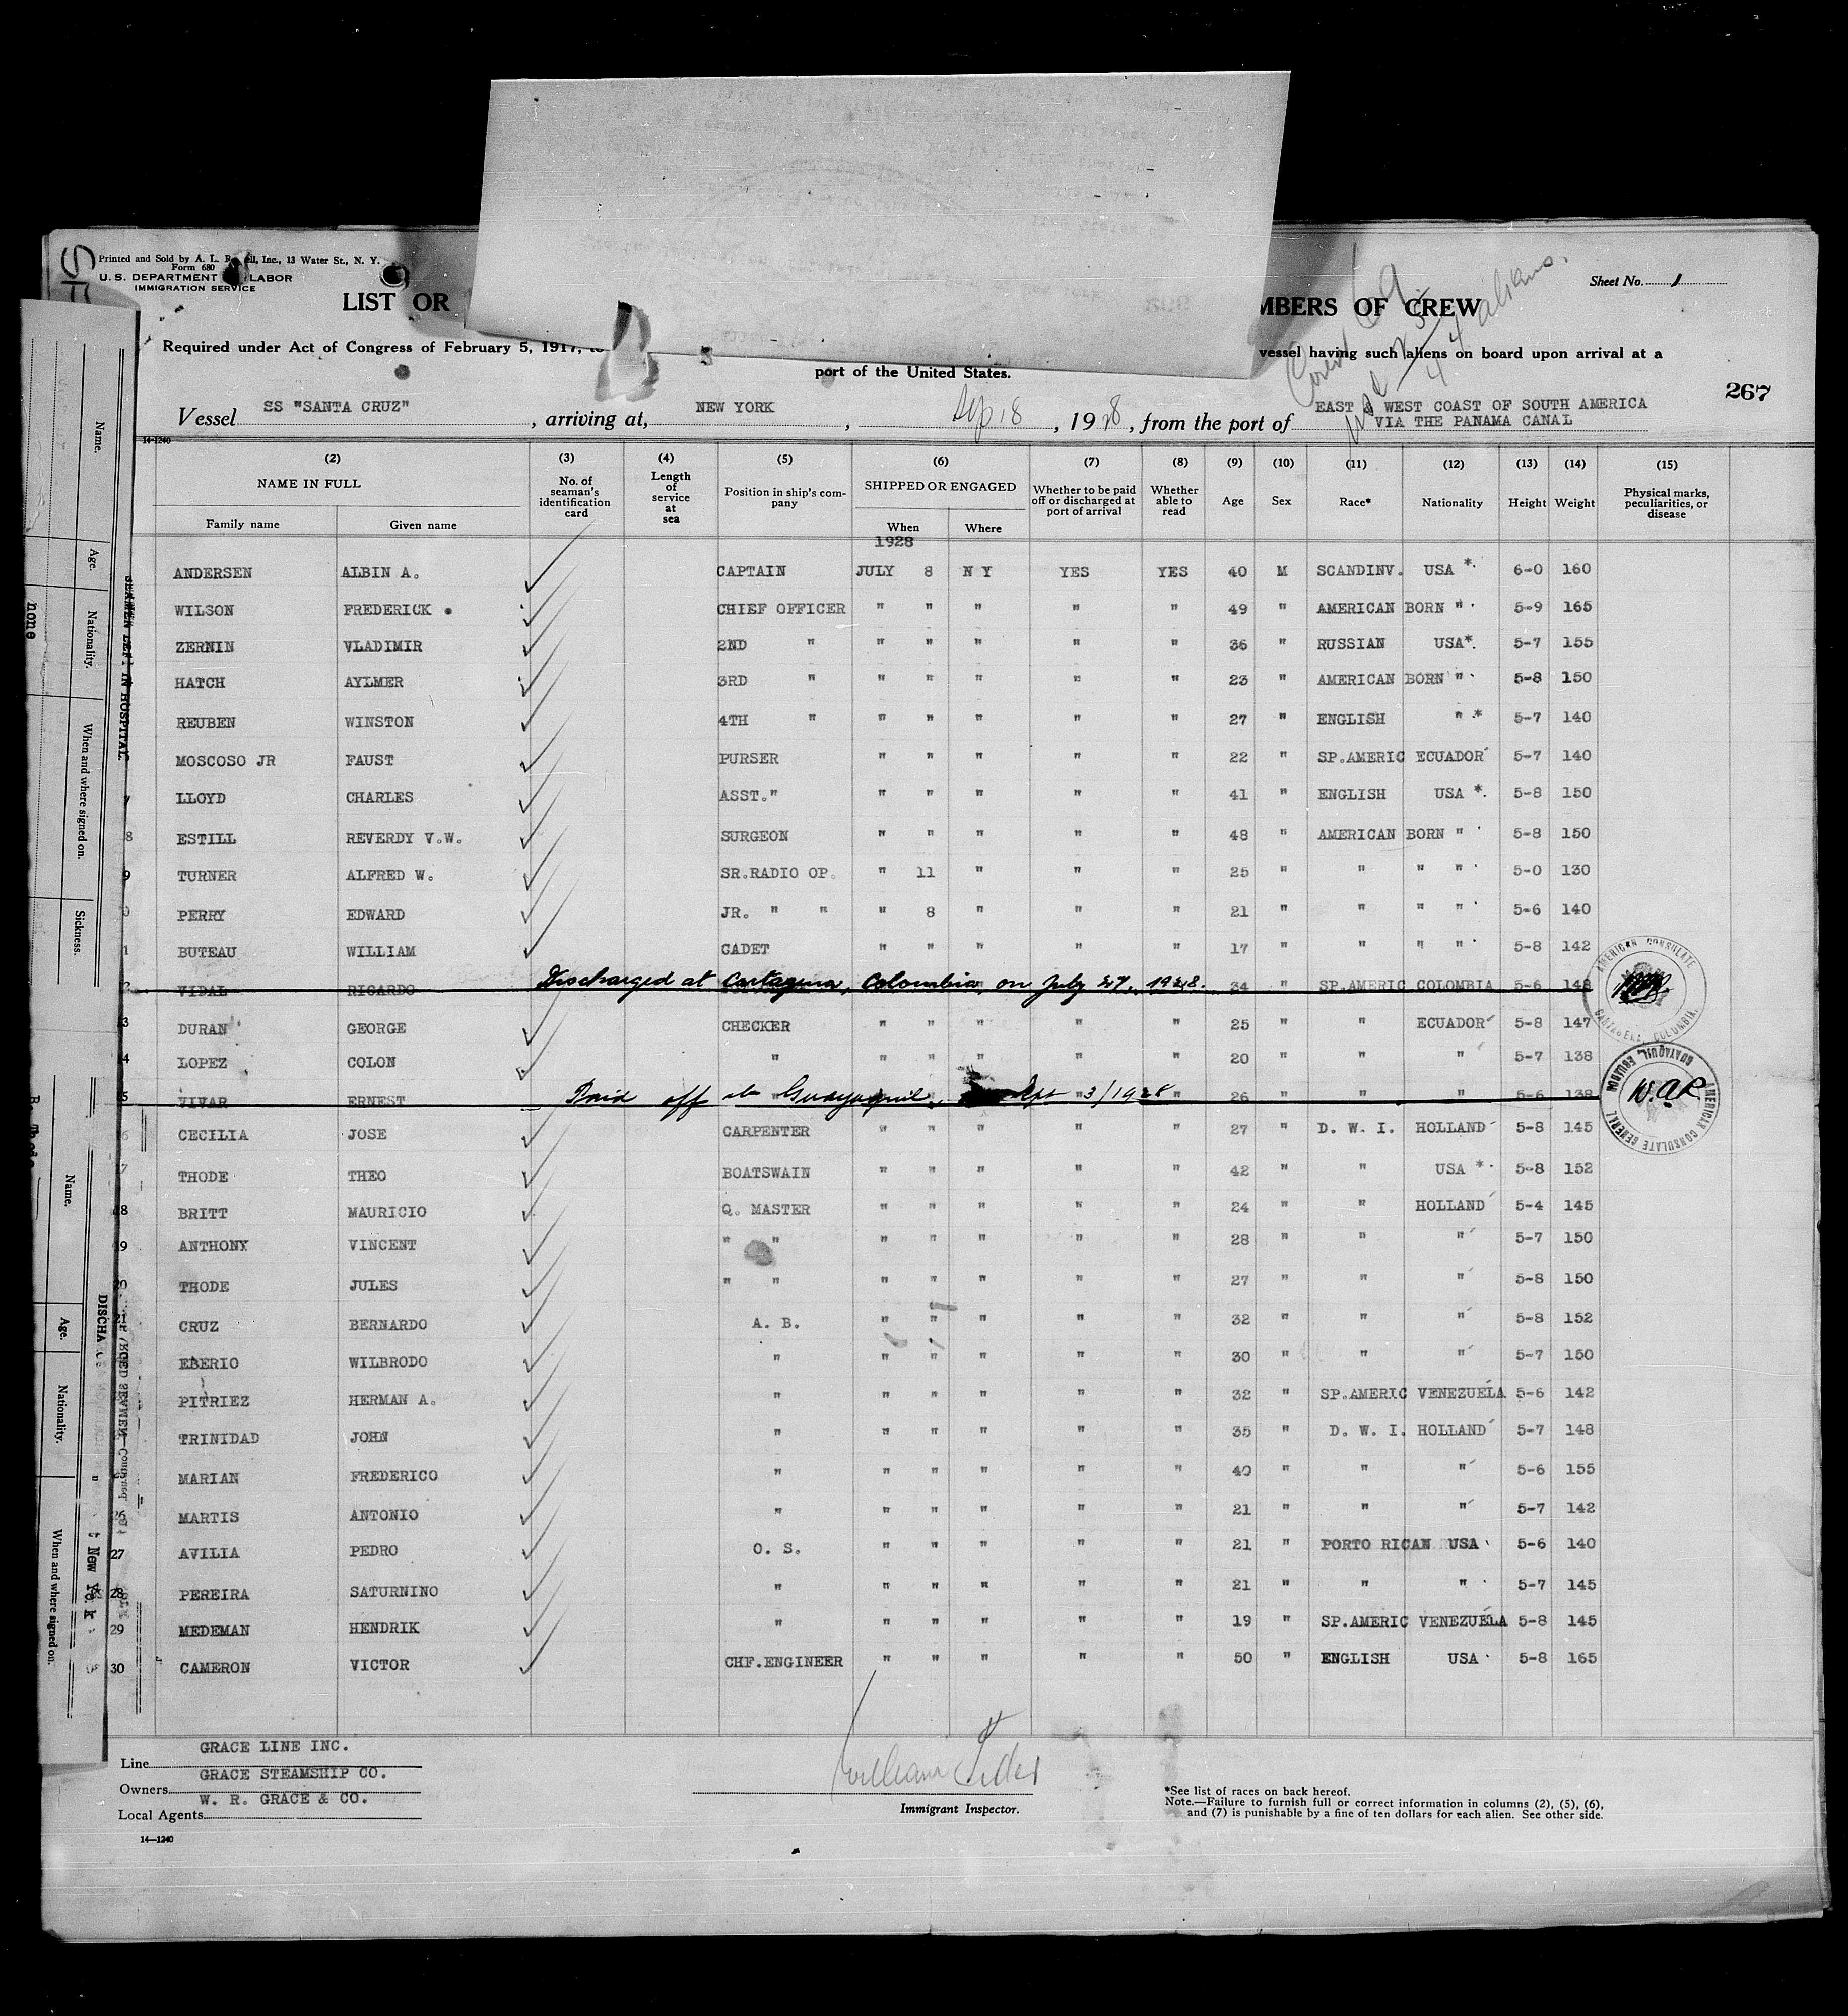 Printed and Sold by A. L. R ell, Inc., 13 Water St., N. Y.
Form 680
U. S. DEPARTMENT LABOR
IMMIGRATION SERVICE
Sheet No. 1
LIST OR MBERS OF CREW
Required under Act of Congress of February 5, 1917, to vessel having such aliens on board upon arrival at a
port of the United States.
267
Vessel SS "SANTA CRUZ", arriving at, NEW YORK, Sep 18, 1928, from the port of EAST & WEST COAST OF SOUTH AMERICA
VIA THE PANAMA CANAL
14-1240
(2) (3) (4) (5) (6) (7) (8) (9) (10) (11) (12) (13) (14) (15)
NAME IN FULL No. of seaman's identification card Length of service at sea Position in ship's company SHIPPED OR ENGAGED Whether to be paid off or discharged at port of arrival Whether able to read Age Sex Race* Nationality Height Weight Physical marks, peculiarities, or disease
Family name Given name When Where
1928
ANDERSEN ALBIN A. CAPTAIN JULY 8 N Y YES YES 40 M SCANDINV. USA *. 6-0 160
WILSON FREDERICK CHIEF OFFICER " " " " " 49 " AMERICAN BORN " 5-9 165
ZERNIN VLADIMIR 2ND " " " " " " 36 " RUSSIAN USA*. 5-7 155
HATCH AYLMER 3RD " " " " " " 23 " AMERICAN BORN " 5-8 150
REUBEN WINSTON 4TH " " " " " " 27 " ENGLISH " * 5-7 140
MOSCOSO JR FAUST PURSER " " " " " 22 " SP.AMERIC ECUADOR 5-7 140
7 LLOYD CHARLES ASST." " " " " " 41 " ENGLISH USA *. 5-8 150
8 ESTILL REVERDY V.W. SURGEON " " " " " 48 " AMERICAN BORN " 5-8 150
9 TURNER ALFRED W. SR.RADIO OP. " 11 " " " 25 " " " " 5-0 130
0 PERRY EDWARD JR. " " " 8 " " " 21 " " " " 5-6 140
1 BUTEAU WILLIAM CADET " " " " " 17 " " " " 5-8 142
2 VIDAL RICARDO Discharged at Cartagena, Colombia, on July 27, 1928. 34 " SP.AMERIC COLOMBIA 5-6 148
3 DURAN GEORGE CHECKER " " " " " 25 " " ECUADOR 5-8 147
4 LOPEZ COLON " " " " " " 20 " " " 5-7 138
5 VIVAR ERNEST Paid off in Guayaquil, Sept 3/1928 " 26 " " " 5-6 138
6 CECILIA JOSE CARPENTER " " " " " 27 " D. W. I. HOLLAND 5-8 145
17 THODE THEO BOATSWAIN " " " " " 42 " " USA *. 5-8 152
18 BRITT MAURICIO Q. MASTER " " " " " 24 " " HOLLAND 5-4 145
19 ANTHONY VINCENT " " " " " " " 28 " " " 5-7 150
20 THODE JULES " " " " " " " 27 " " " 5-8 150
21 CRUZ BERNARDO A. B. " " " " " 32 " " " 5-8 152
EBERIO WILBRODO " " " " " " 30 " " " 5-7 150
PITRIEZ HERMAN A. " " " " " " 32 " SP.AMERIC VENEZUELA 5-6 142
TRINIDAD JOHN " " " " " " 35 " D. W. I. HOLLAND 5-7 148
MARIAN FREDERICO " " " " " " 40 " " " 5-6 155
26 MARTIS ANTONIO " " " " " " 21 " " " 5-7 142
27 AVILIA PEDRO O. S. " " " " " 21 " PORTO RICAN USA 5-6 140
28 PEREIRA SATURNINO " " " " " " 21 " " " 5-7 145
29 MEDEMAN HENDRIK " " " " " " 19 " SP.AMERIC VENEZUELA 5-8 145
30 CAMERON VICTOR CHF.ENGINEER " " " " " 50 " ENGLISH USA 5-8 165
AMERICAN CONSULATE
CARTAGENA, COLOMBIA.
AMERICAN CONSULATE GENERAL
GUAYAQUIL, ECUADOR
Line GRACE LINE INC.
Owners GRACE STEAMSHIP CO.
Local Agents W. R. GRACE & CO.
14—1240
William
Immigrant Inspector.
*See list of races on back hereof.
Note.—Failure to furnish full or correct information in columns (2), (5), (6),
and (7) is punishable by a fine of ten dollars for each alien. See other side.
Name.
Age.
Nationality.
When and where signed on.
Sickness.
none
SEAMEN LEFT IN HOSPITAL
Name.
Age.
Nationality.
When and where signed on.
DISCHA
New York